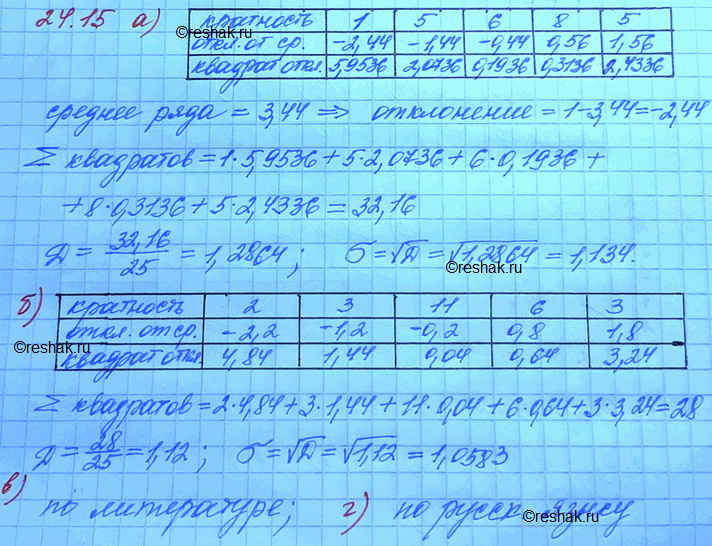 24.15 а) кратность 1 5 6 8 5
откл. от ср. -2,44 -1,44 -0,44 0,56 1,56
квадрат откл. 5,9536 2,0736 0,1936 0,3136 2,4336
©reshak.ru
среднее ряда = 3,44 ⇒ отклонение = 1-3,44=-2,44
Σ квадратов = 1·5,9536 + 5·2,0736 + 6·0,1936 +
+ 8·0,3136 + 5·2,4336 = 32,16
D = 32,16/25 = 1,2864; σ = √D = √1,2864 = 1,134.
©reshak.ru
б) кратность 2 3 11 6 3
откл. от ср. -2,2 -1,2 -0,2 0,8 1,8
квадрат откл. 4,84 1,44 0,04 0,64 3,24
©reshak.ru
Σ квадратов = 2·4,84 + 3·1,44 + 11·0,04 + 6·0,64 + 3·3,24 = 28
D = 28/25 = 1,12; σ = √D = √1,12 = 1,0583
в) по литературе; г) по русск. языку
©reshak.ru